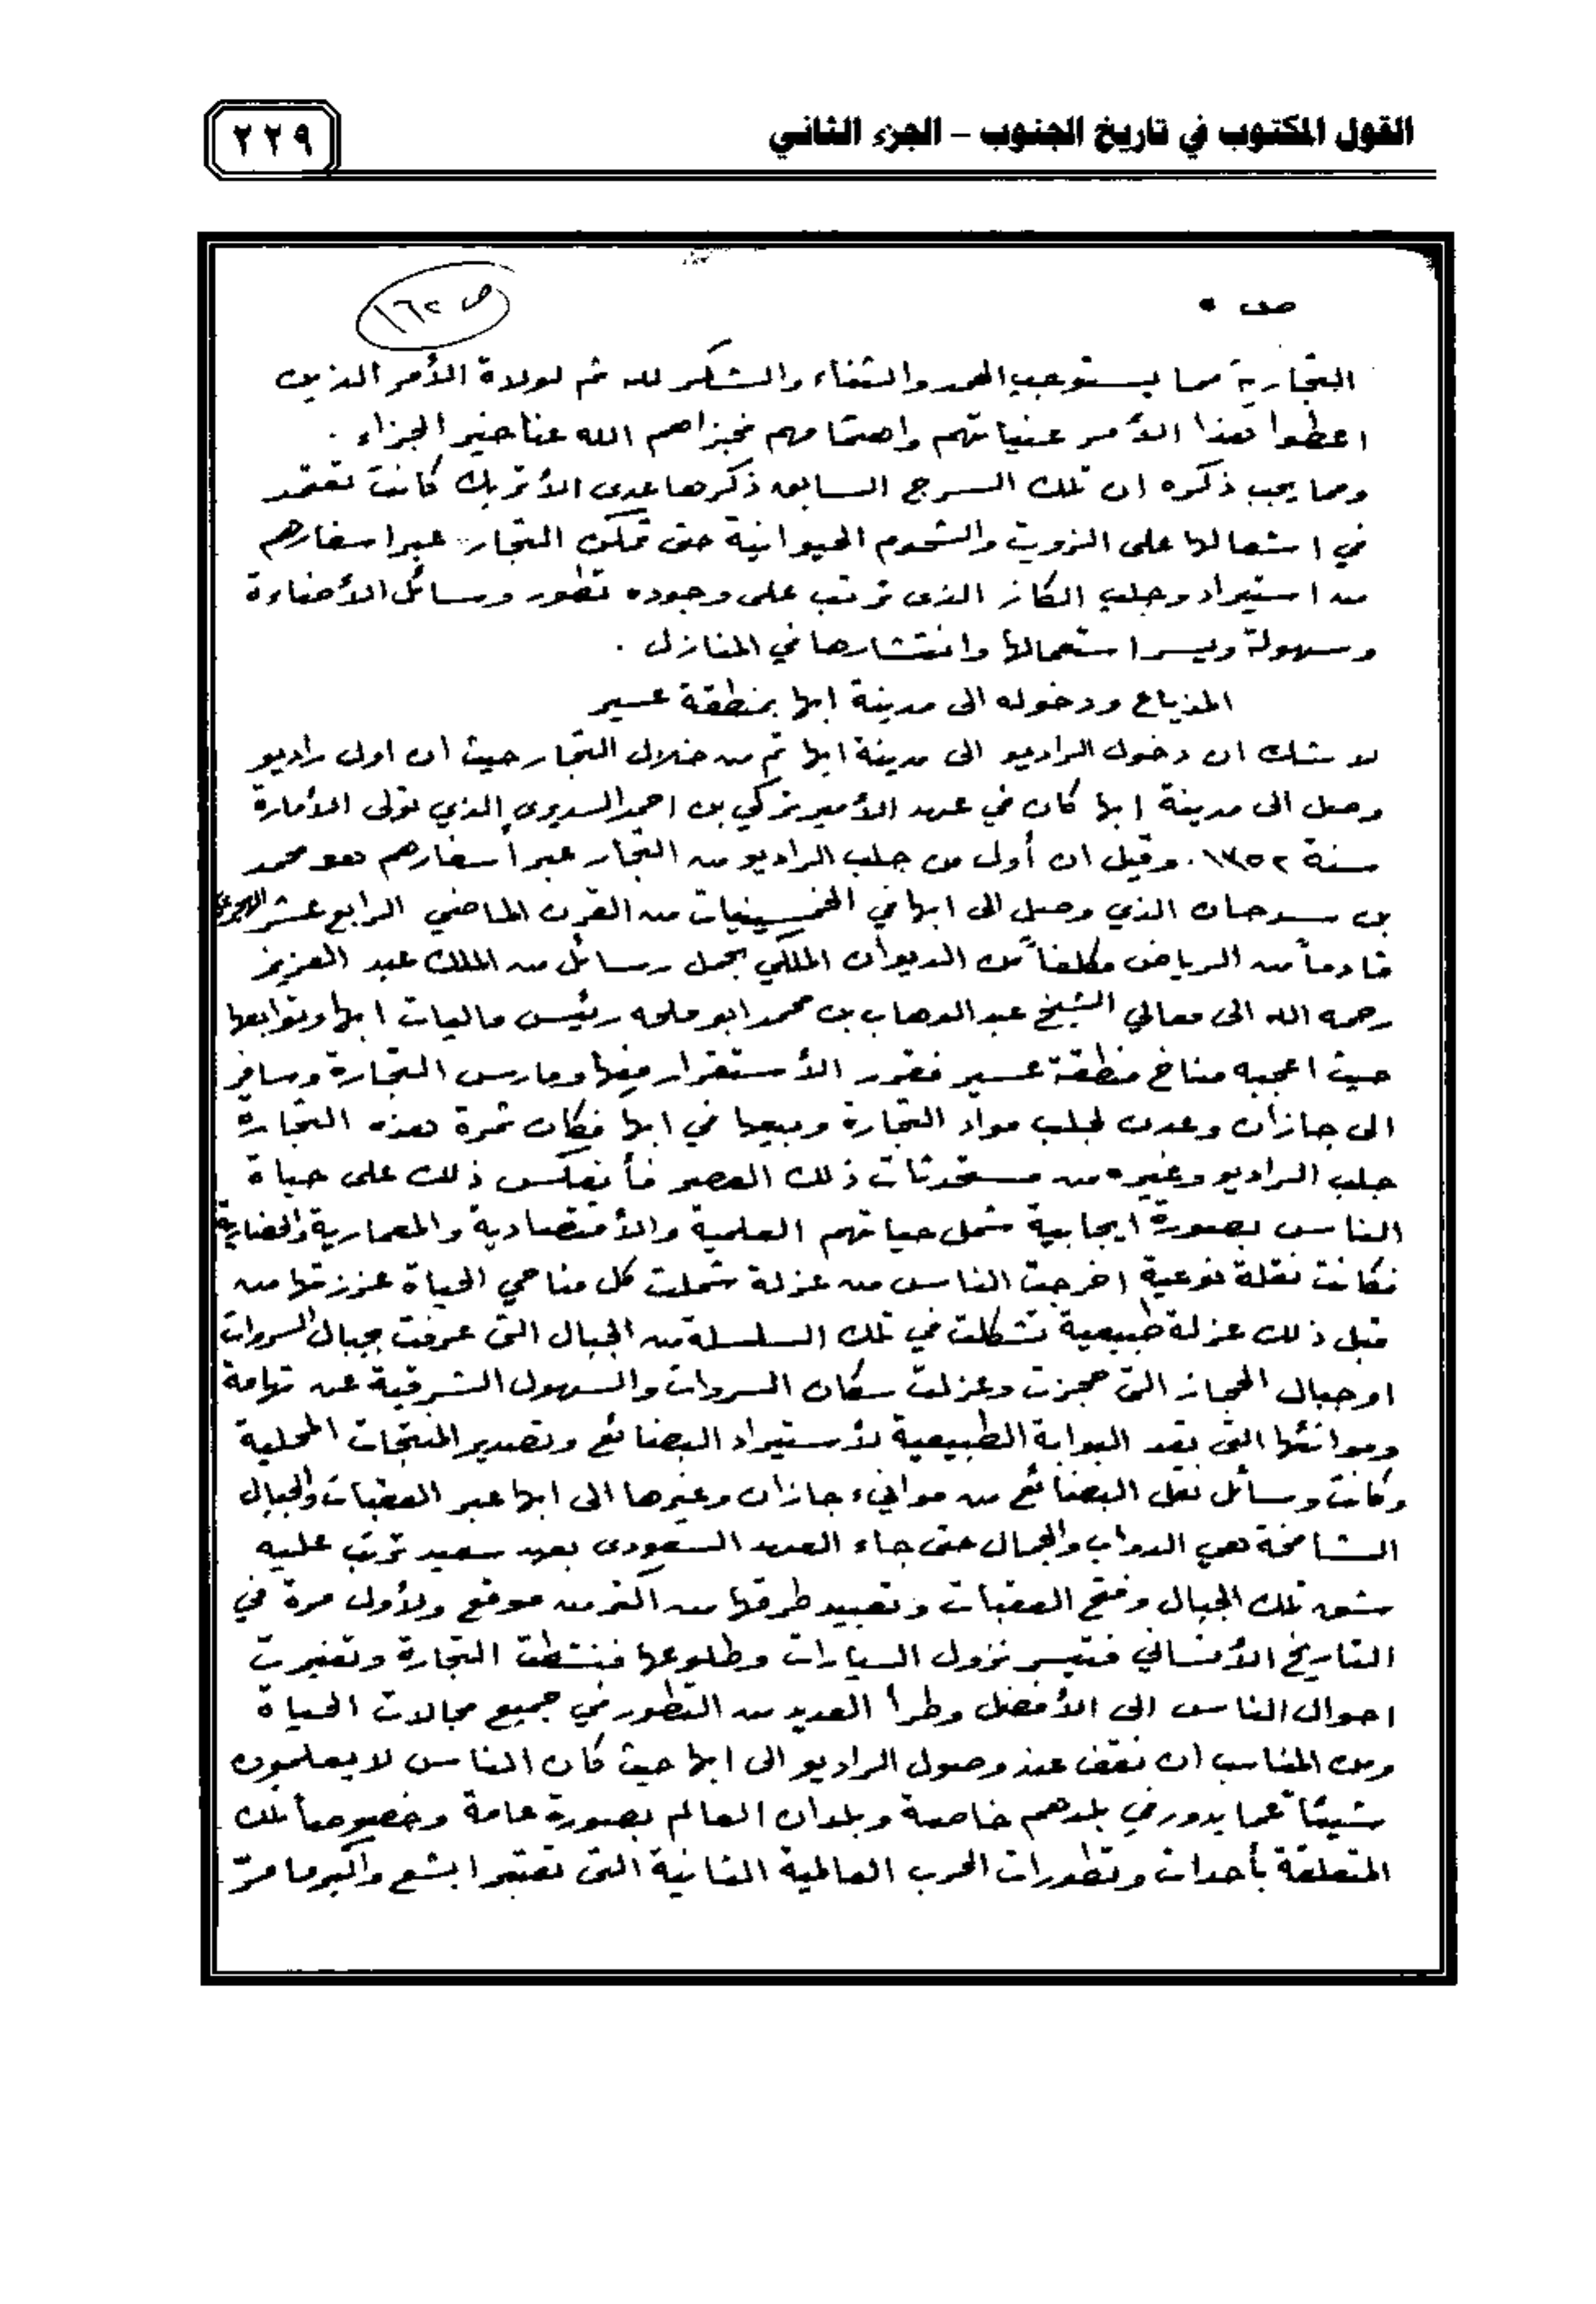 القول المكتوب في تاريخ الجنوب – الجزء الثاني
٢٢٩
ص ٥
ص ١٦٢
التجارية مما يستوجب الحمد والثناء والشكر لله ثم لولاة الأمر الذين
اعطوا هذا الأمر عنياتهم واهتمامهم فجزاهم الله عنا خير الجزاء .
ومما يجب ذكره ان تلك السرج السابق ذكرها عدى الأتريك كانت تعتمد
في اشعالها على الزيوت والشحوم الحيوانية حتى تمكن التجار عبر اسفارهم
من استيراد وجلب الكاز الذى ترتب على وجوده تطور وسائل الأضاءة
وسهولة ويسر استعمالها وانتشارها في المنازل .
المذياع ودخوله الى مدينة ابها بمنطقة عسير
لا شك ان دخول الراديو الى مدينة ابها تم من خلال التجار حيث ان اول راديو
وصل الى مدينة ابها كان في عهد الأمير تركي بن احمد السديري الذي تولى الأمارة
سنة ١٣٥٢. وقيل ان أول من جلب الراديو من التجار عبر أسفارهم هو محمد
بن سرحان الذي وصل الى ابها في الخمسينيات من القرن الماضي الرابع عشر الهجري
قادماً من الرياض مكلفاً من الديوان الملكي بحمل رسائل من الملك عبد العزيز
رحمه الله الى معالي الشيخ عبد الوهاب بن محمد ابو ملحه رئيس ماليات ابها وتوابعها
حيث اعجبه مناخ منطقة عسير فقرر الأستقرار فيها ومارس التجارة وسافر
الى جازان وعدن لجلب مواد التجارة وبيعها في ابها فكان ثمرة هذه التجارة
جلب الراديو وغيره من مستحدثات ذلك العصر فأنعكس ذلك على حياة
الناس بصورة ايجابية شمل حياتهم العلمية والأقتصادية والمعمارية والحضارية
فكانت نقلة نوعية اخرجت الناس من عزلة شملت كل مناحي الحياة عززتها من
قبل ذلك عزلة طبيعية تشكلت في تلك السلسلة من الجبال التى عرفت بجبال السروات
او جبال الحجاز التى حجزت وعزلت سكان السروات والسهول الشرقية عن تهامة
وموانئها التى تعد البوابة الطبيعية لأستيراد البضائع وتصدير المنتجات المحلية
وكانت وسائل نقل البضائع من موانيء جازان وغيرها الى ابها عبر العقبات والجبال
الشامخة هي الدواب والجمال حتى جاء العهد السعودى بعهد سعيد ترتب عليه
شق تلك الجبال وفتح العقبات وتعبيد طرقها من اكثر من موقع ولأول مرة في
التاريخ الأنساني فتيسر نزول السيارات وطلوعها فنشطت التجارة وتغيرت
احوال الناس الى الأفضل وطرأ العديد من التطور في جميع مجالات الحياة
ومن المناسب ان نقف عند وصول الراديو الى ابها حيث كان الناس لا يعلمون
شيئاً عما يدور في بلدهم خاصة وبلدان العالم بصورة عامة وخصوصاً تلك
المتعلقة بأحداث وتطورات الحرب العالمية الثانية التى تعتبر ابشع واكبر ما مرّ